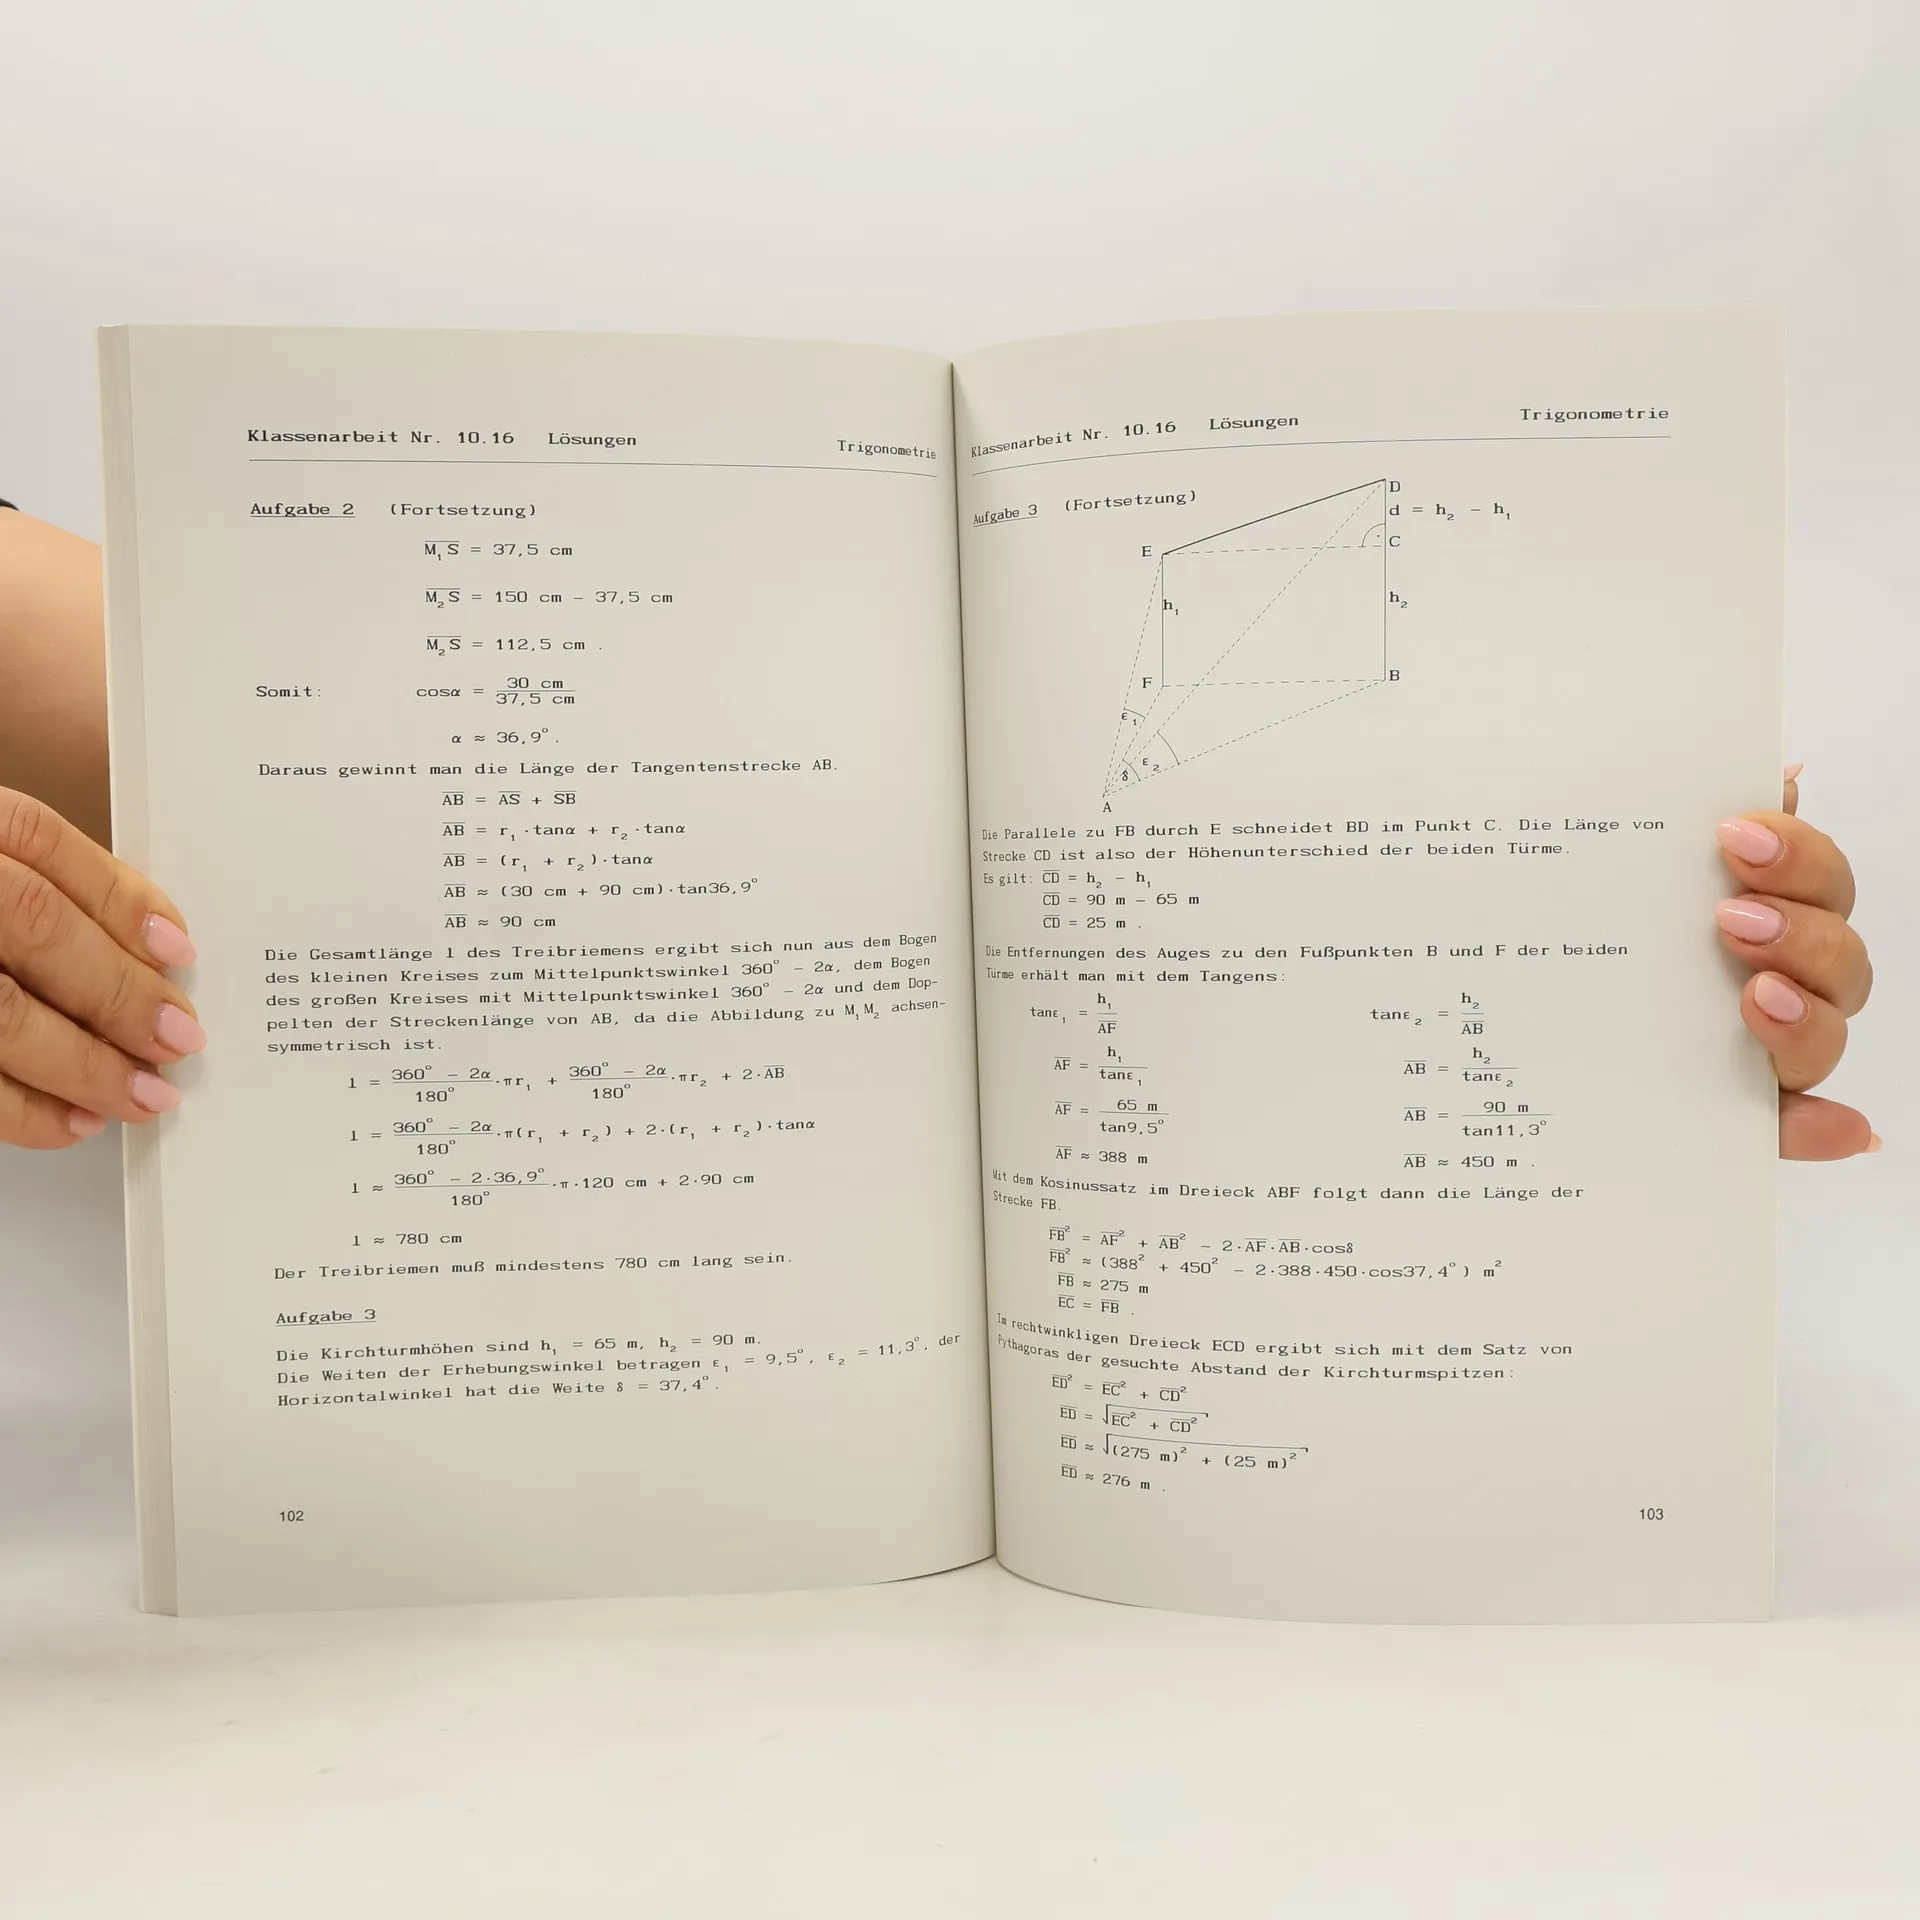 Klassenarbeit Nr. 10.16 Lösungen Trigonometrie
Aufgabe 2 (Fortsetzung)
M₁S = 37,5 cm
M₂S = 150 cm - 37,5 cm
M₂S = 112,5 cm .
Somit: cosα = 30 cm / 37,5 cm
α ≈ 36,9° .
Daraus gewinnt man die Länge der Tangentenstrecke AB.
AB = AS + SB
AB = r₁ · tanα + r₂ · tanα
AB = (r₁ + r₂) · tanα
AB ≈ (30 cm + 90 cm) · tan36,9°
AB ≈ 90 cm
Die Gesamtlänge l des Treibriemens ergibt sich nun aus dem Bogen
des kleinen Kreises zum Mittelpunktswinkel 360° - 2α, dem Bogen
des großen Kreises mit Mittelpunktswinkel 360° - 2α und dem Dop-
pelten der Streckenlänge von AB, da die Abbildung zu M₁M₂ achsen-
symmetrisch ist.
l = (360° - 2α)/180° · πr₁ + (360° - 2α)/180° · πr₂ + 2 · AB
l = (360° - 2α)/180° · π(r₁ + r₂) + 2 · (r₁ + r₂) · tanα
l ≈ (360° - 2 · 36,9°)/180° · π · 120 cm + 2 · 90 cm
l ≈ 780 cm
Der Treibriemen muß mindestens 780 cm lang sein.
Aufgabe 3
Die Kirchturmhöhen sind h₁ = 65 m, h₂ = 90 m.
Die Weiten der Erhebungswinkel betragen ε₁ = 9,5°, ε₂ = 11,3°, der
Horizontalwinkel hat die Weite δ = 37,4°.
102
Klassenarbeit Nr. 10.16 Lösungen Trigonometrie
Aufgabe 3 (Fortsetzung)
D
d = h₂ - h₁
E
C
h₁
h₂
F
B
ε₁
ε₂
δ
A
Die Parallele zu FB durch E schneidet BD im Punkt C. Die Länge von
Strecke CD ist also der Höhenunterschied der beiden Türme.
Es gilt: CD = h₂ - h₁
CD = 90 m - 65 m
CD = 25 m .
Die Entfernungen des Auges zu den Fußpunkten B und F der beiden
Türme erhält man mit dem Tangens:
tanε₁ = h₁/AF tanε₂ = h₂/AB
AF = h₁/tanε₁ AB = h₂/tanε₂
AF = 65 m/tan9,5° AB = 90 m/tan11,3°
AF ≈ 388 m AB ≈ 450 m .
Mit dem Kosinussatz im Dreieck ABF folgt dann die Länge der
Strecke FB.
FB² = AF² + AB² - 2 · AF · AB · cosδ
FB² ≈ (388² + 450² - 2 · 388 · 450 · cos37,4°) m²
FB ≈ 275 m
EC = FB .
Im rechtwinkligen Dreieck ECD ergibt sich mit dem Satz von
Pythagoras der gesuchte Abstand der Kirchturmspitzen:
ED² = EC² + CD²
ED = √(EC² + CD²)
ED ≈ √((275 m)² + (25 m)²)
ED ≈ 276 m .
103